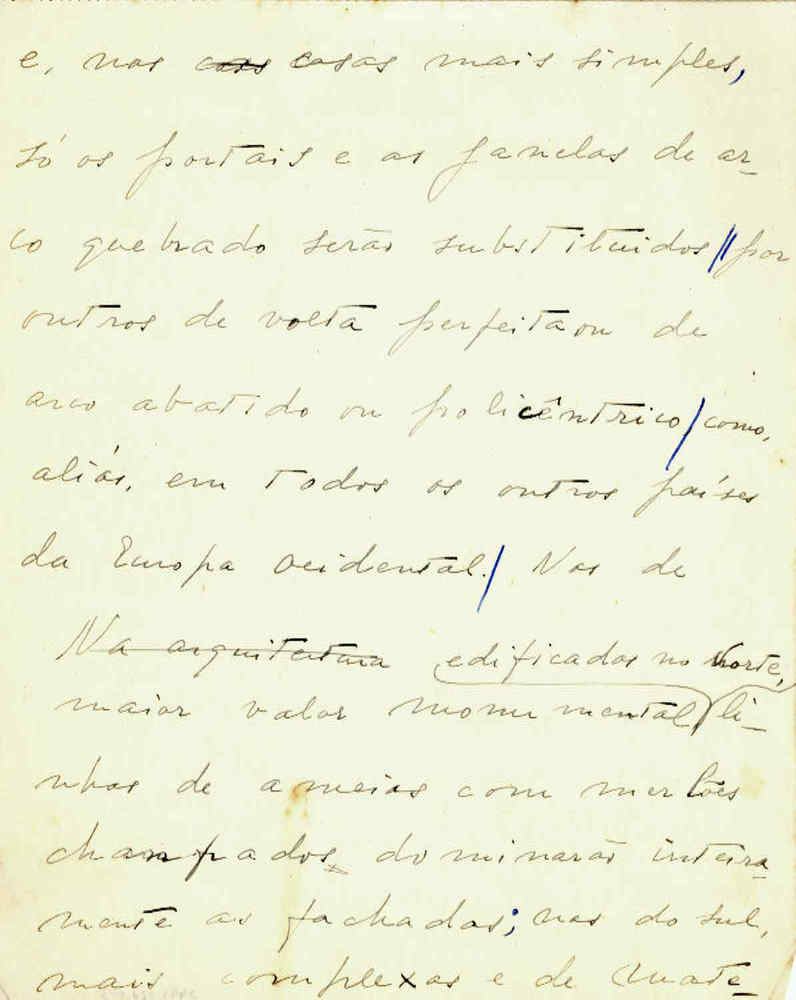 e, nas casas casas mais simples,
só os portais e as janelas de ar-
co quebrado serão substituidos // por
outros de volta perfeita ou de
arco abatido ou policêntrico / como,
aliás, em todos os outros países
da Europa Ocidental. / Nas de
Na arquitectura edificadas no Norte,
maior valor monumental, li-
nhas de ameias com merlões
chanfrados dominarão inteira-
mente as fachadas; nas do sul,
mais complexas e de